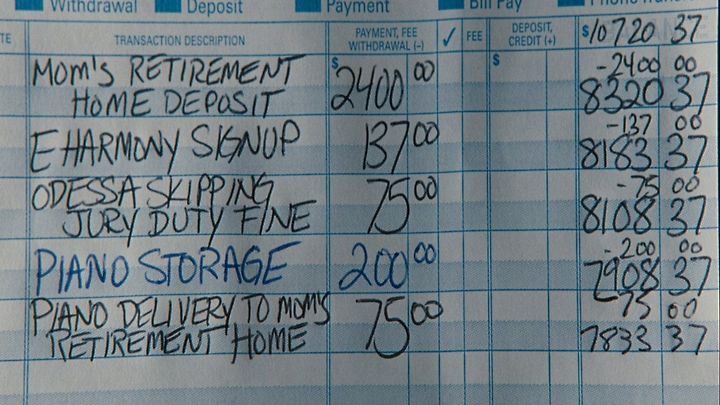 Withdrawal Deposit Payment Bill Pay
TE TRANSACTION DESCRIPTION PAYMENT, FEE WITHDRAWAL (–) ✓ FEE DEPOSIT, CREDIT (+) $10720 37
MOM'S RETIREMENT $ 2400 00 $ -2400 00
HOME DEPOSIT 8320 37
E HARMONY SIGNUP 137 00 -137 00
8183 37
ODESSA SKIPPING 75 00 -75 00
JURY DUTY FINE 8108 37
PIANO STORAGE 200 00 -200 00
7908 37
PIANO DELIVERY TO MOM'S 75 00 75 00
RETIREMENT HOME 7833 37